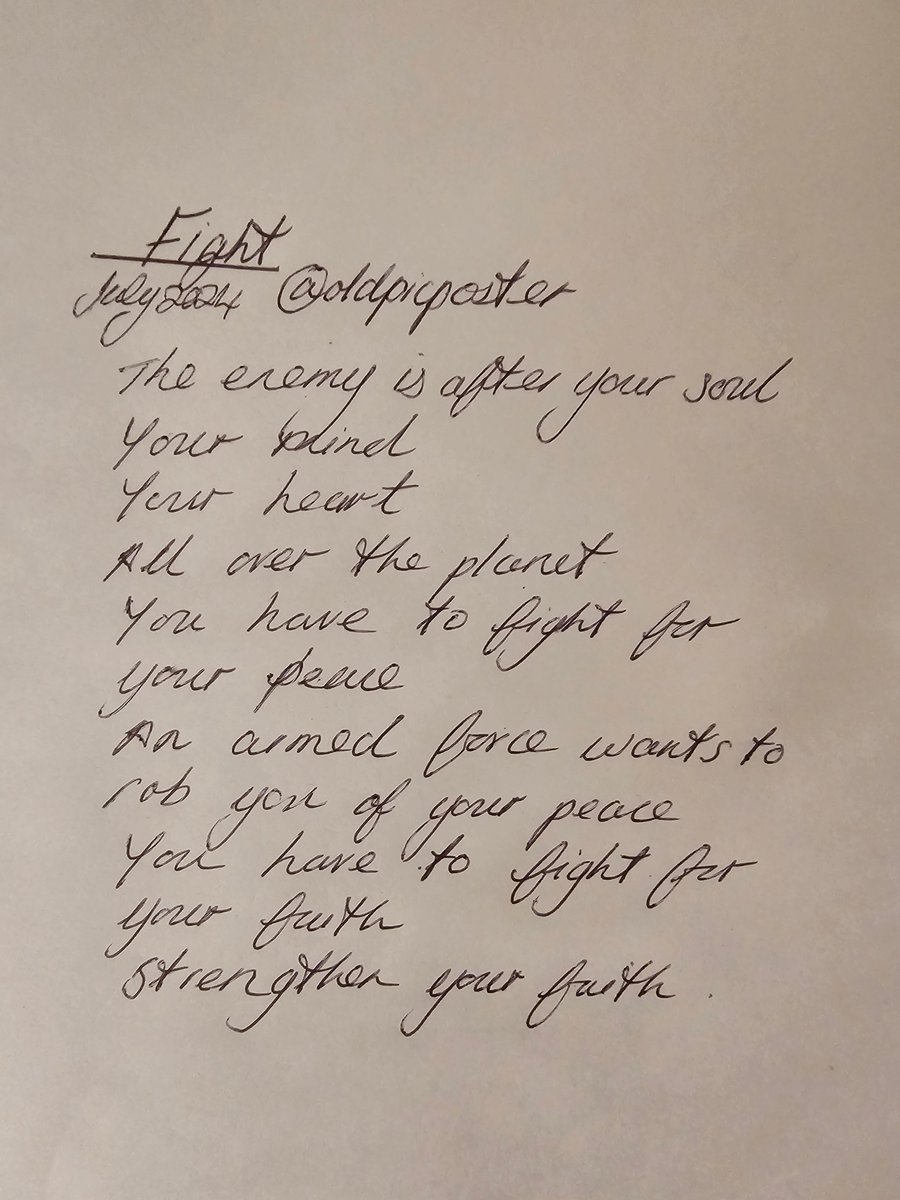 Fight
July 2024 @oldpicposter
The enemy is after your soul
Your mind
Your heart
All over the planet
You have to fight for
your peace
An armed force wants to
rob you of your peace
You have to fight for
your faith
Strengthen your faith.